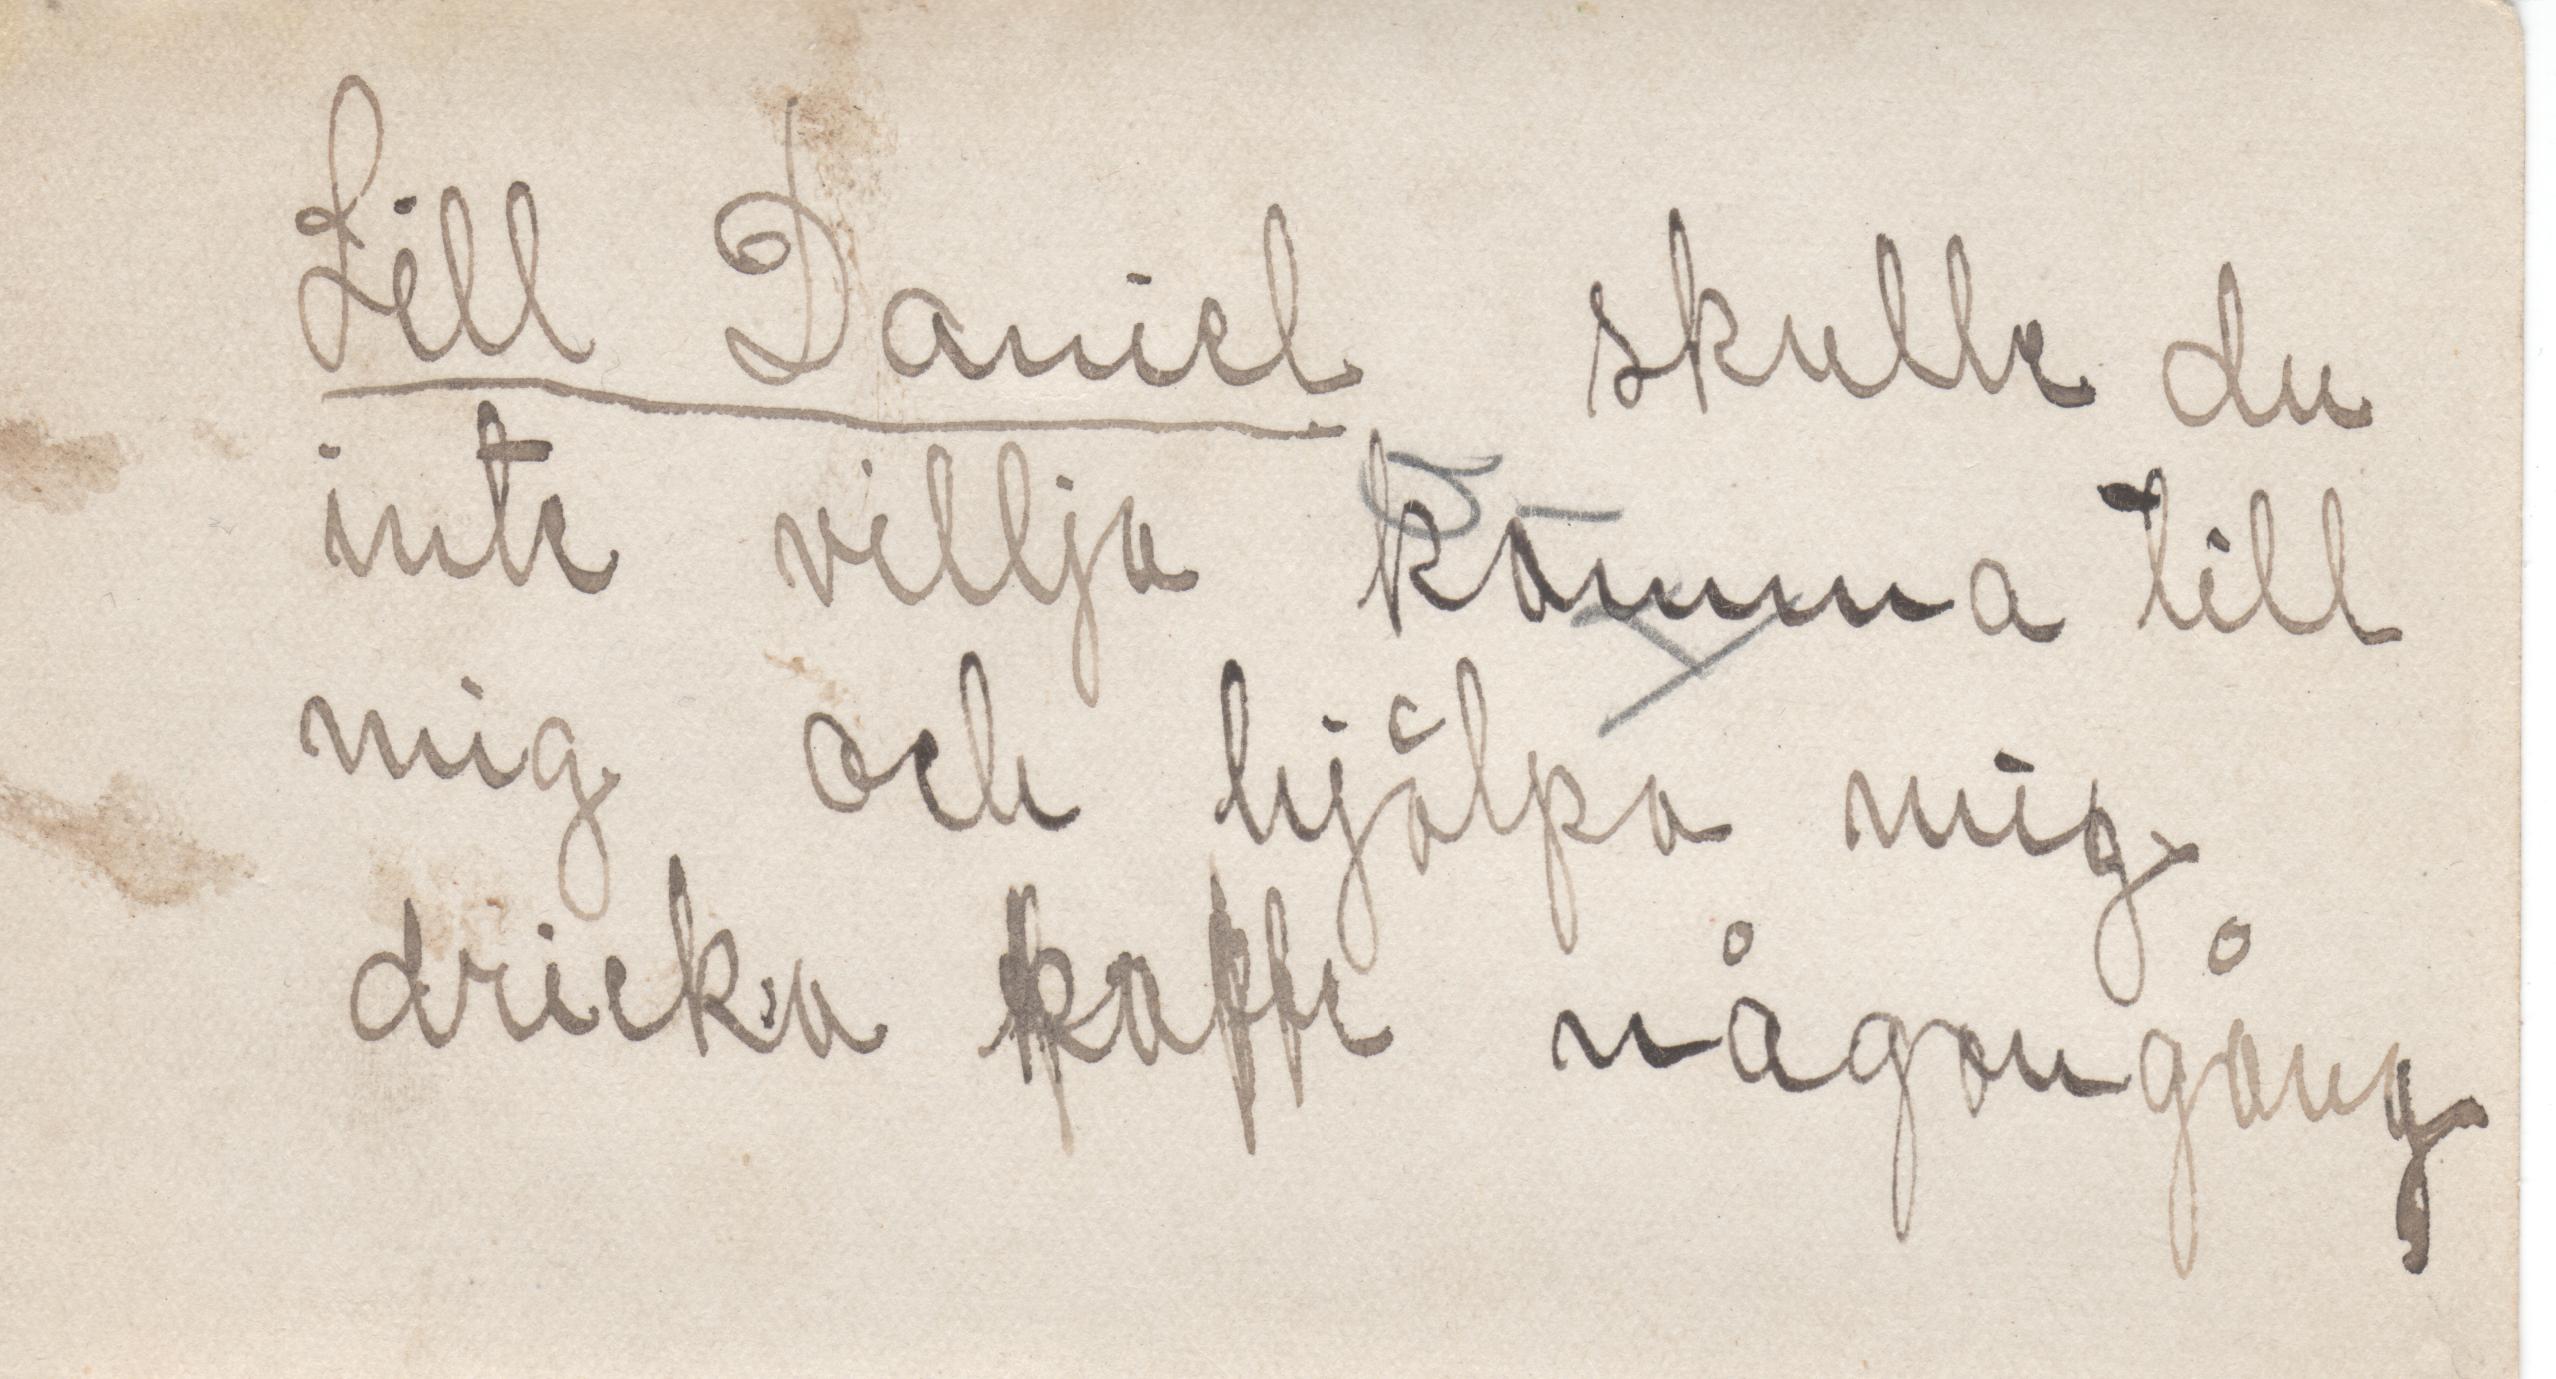 Lill Daniel skulle du
inte villja komma till
mig och hjälpa mig
dricka kaffe någongång